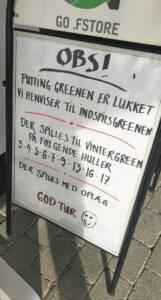 GO .FSTORE
OBS!
PUTTING GREENEN ER LUKKET
VI HENVISER TIL INDSPILSGREENEN
DER SPILLES TIL VINTERGREEN
PÅ FØLGENDE HULLER
3-4-5-6-7-9-13-16-17
DER SPILLES MED OPLÆG.
GOD TUR